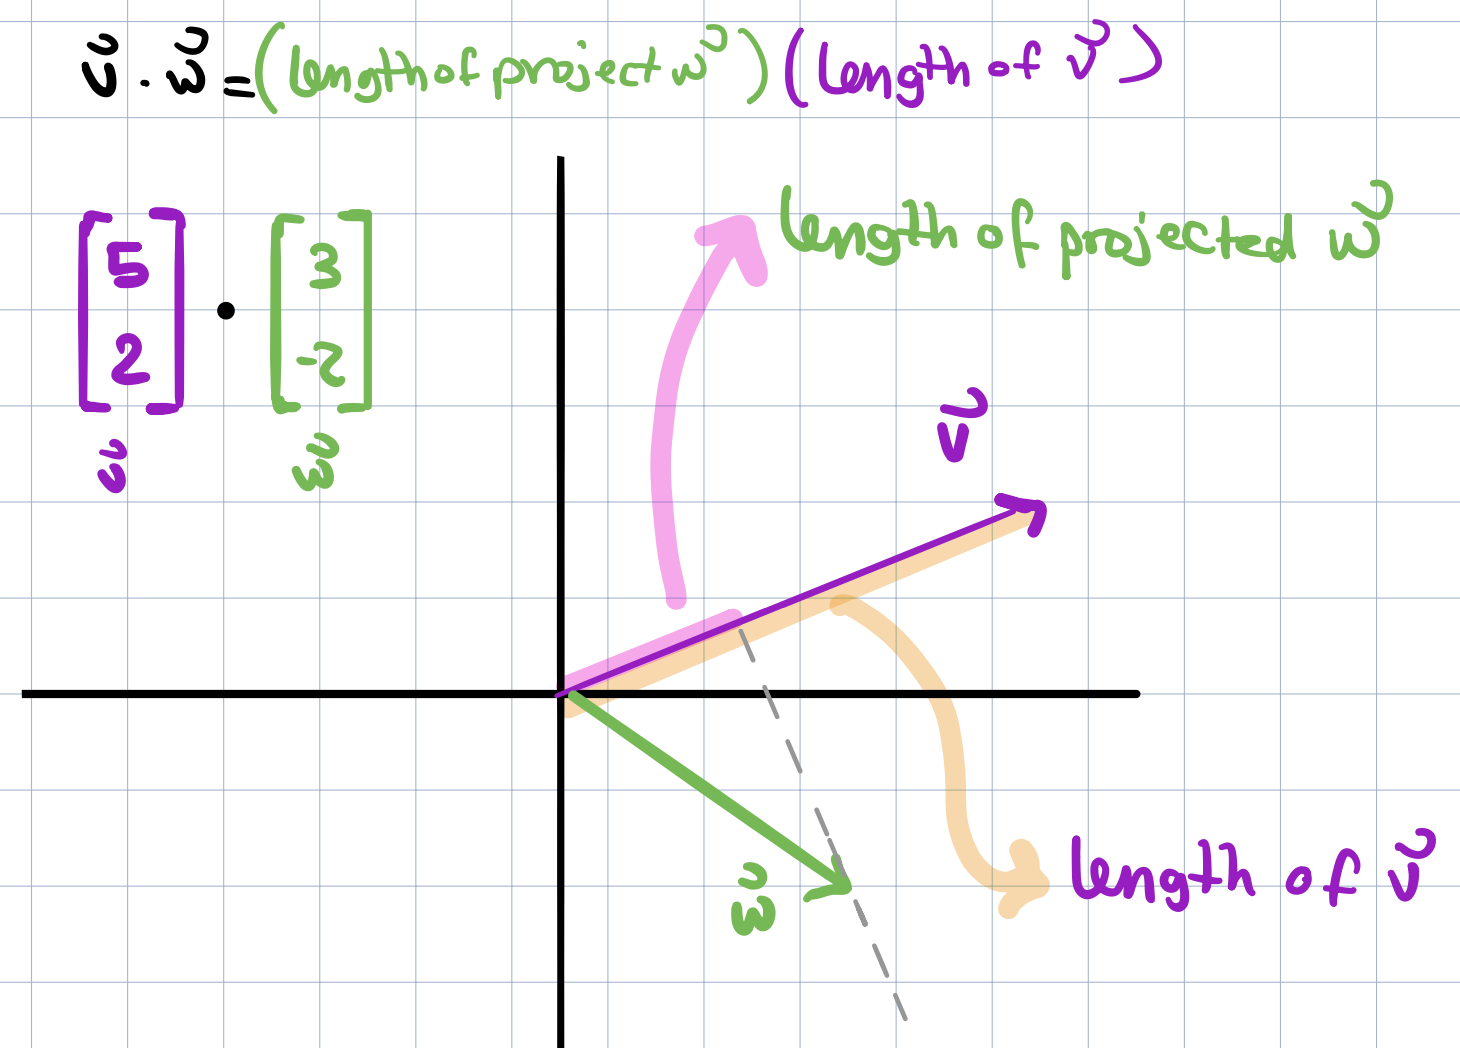 v⃗ · w⃗ = (length of project w⃗) (length of v⃗)
length of projected w⃗
[5 2] · [3 -2]
v⃗ w⃗
v⃗
w⃗
length of v⃗